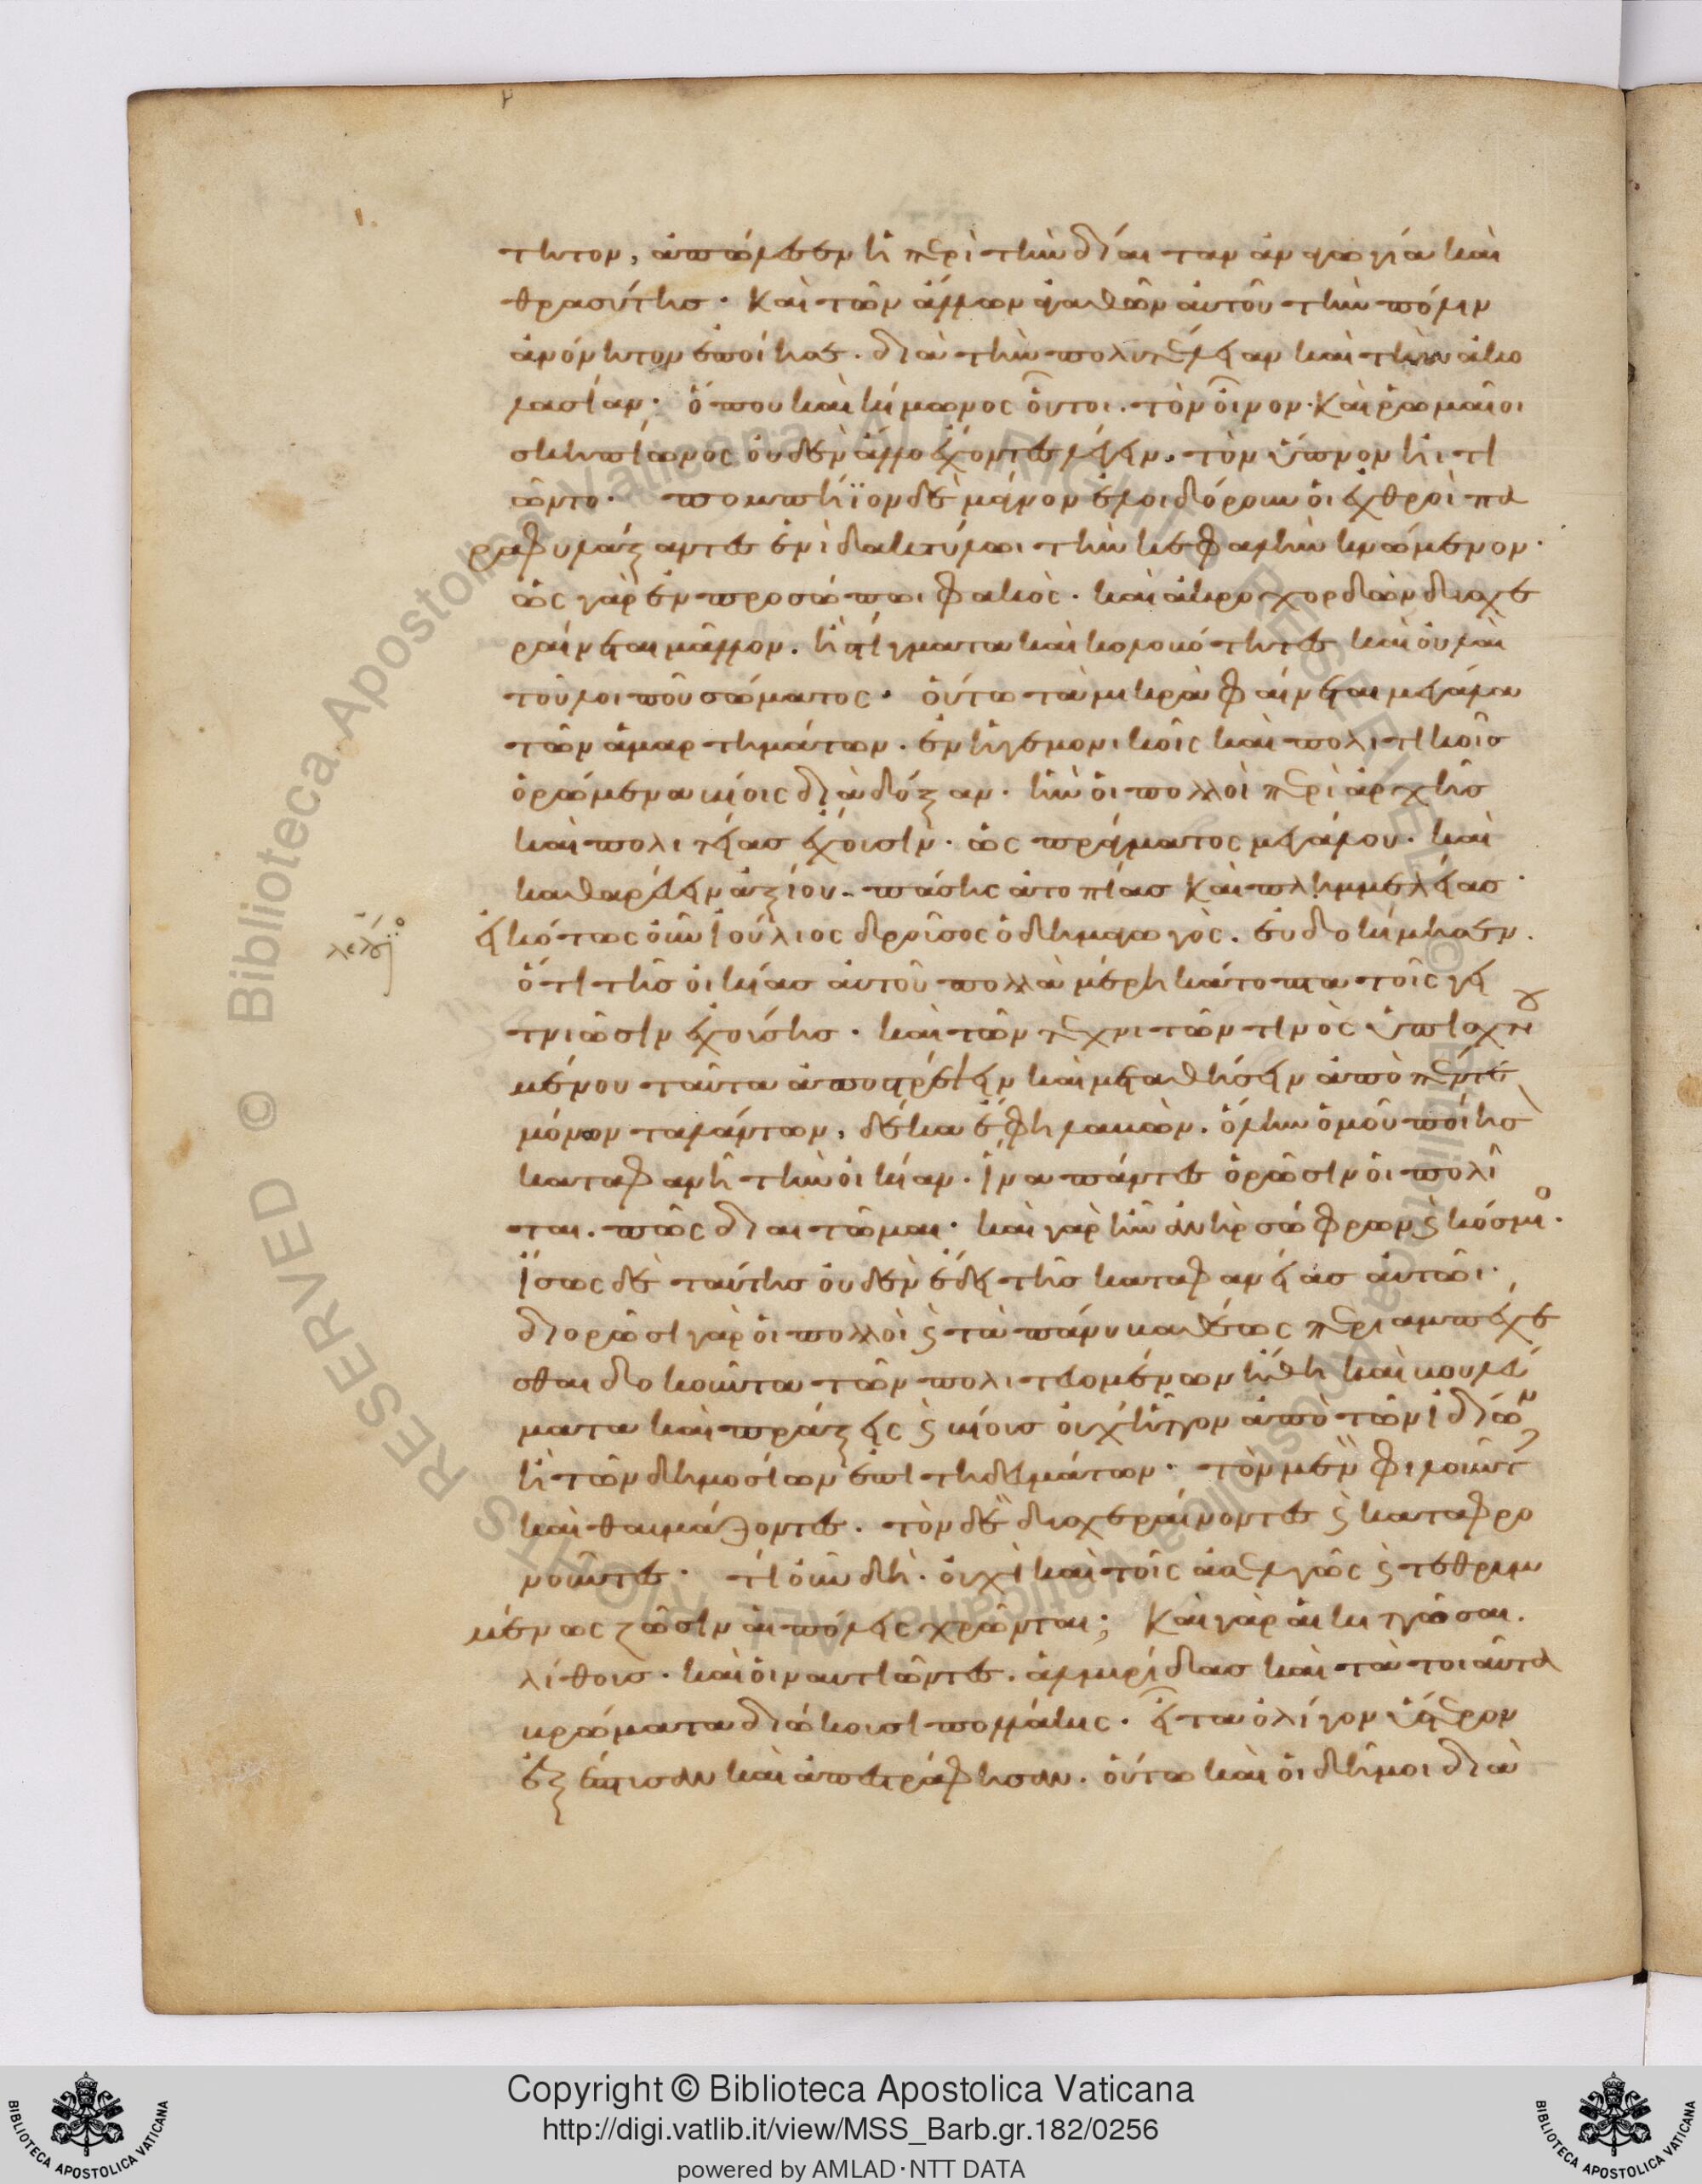 τητον, ἀπώλεσεν ἡ περὶ τὴν δίαιταν ἀναγωγία καὶ
θρασύτης· καὶ τῶν ἄλλων ἀγαθῶν αὐτοῦ τὴν πόλιν
ἀνόνητον ἐποίησε. διὰ τὴν πολυτέλειαν καὶ τὴν ἀκο
λασίαν· ὅπου καὶ κίμωνος οὗτοι. τὸν οἶνον· καὶ ῥωμαῖοι
σκηπίωνος οὐδὲν ἄλλο ἔχοντες λέγειν. τὸν ὕπνον ἠιτι
ῶντο· πομπήϊον δὲ μάγνον ἐλοιδόρουν οἱ ἐχθροὶ πα
ραφυλάξαντες ἑνὶ δακτύλωι τὴν κεφαλὴν κνώμενον·
ὡς γὰρ ἐν προσώπωι φακὸς· καὶ ἀκροχορδὼν δυσχε
ραίνεται μᾶλλον. ἢ στίγματα καὶ κολοιότητες καὶ οὐλαὶ
τοῦ λοιποῦ σώματος· οὕτω τὰ μικρὰ φαίνεται μεγάλα
τῶν ἁμαρτημάτων. ἐν ἡγεμονικοῖς καὶ πολιτικοῖς
ὁρώμενα βίοις διὰ δόξαν. ἣν οἱ πολλοὶ περὶ ἀρχῆς
καὶ πολιτείας ἔχουσιν· ὡς πράγματος μεγάλου· καὶ
καθαρεύειν ἀξίου. πάσης ἀτοπίας καὶ πλημμελείας·
εἰκότως οὖν ἰούλιος δροῦσος ὁ δημαγωγὸς. εὐδοκίμησεν.
ὅτι τῆς οἰκίας αὐτοῦ πολλὰ μέρη κάτοπτα τοῖς γει
τνιῶσιν ἐχούσης· καὶ τῶν τεχνιτῶν τινὸς ὑπισχνου
μένου ταῦτα ἀποστρέψειν καὶ μεταθήσειν ἀπὸ πέντε
μόνων ταλάντων, δέκα ἔφη λαβὼν. ὅλην ὁμοῦ ποίησ
καταφανῆ τὴν οἰκίαν. ἵνα πάντες ὁρῶσιν οἱ πολῖ
ται. πῶς διαιτῶμαι· καὶ γὰρ ἦν ἀνὴρ σώφρων ϗ κόσμιο·
ἴσως δὲ ταύτης οὐδὲν ἔδει τῆς καταφανείας αὐτῶι·
διορῶσι γὰρ οἱ πολλοὶ ϗ τὰ πάνυ βαθέως περιαμπέχε
σθαι δοκοῦντα τῶν πολιτευομένων ἤθη καὶ βουλεύ
ματα καὶ πράξεις ϗ βίους οὐχ ἧττον ἀπὸ τῶν ἰδίων
ἢ τῶν δημοσίων ἐπιτηδευμάτων· τὸν μὲν φιλοῦντ
καὶ θαυμάζοντες. τὸν δὲ δυσχεραίνοντες ϗ καταφρο
νοῦντες· τί οὖν δὴ. οὐχὶ καὶ τοῖς ἀσελγῶς ϗ τεθρυμ
μένως ζῶσιν αἱ πόλεις χρῶνται; καὶ γὰρ αἱ κιττῶσαι.
λίθους· καὶ οἱ ναυτιῶντες. ἁλμυρίδας καὶ τὰ τοιαῦτα
βρώματα διώκουσι πολλάκις· εἶτα ὀλίγον ὕστερον
ἐξέπτυσαν καὶ ἀπεστράφησαν. οὕτω καὶ οἱ δῆμοι διὰ
Copyright © Biblioteca Apostolica Vaticana
http://digi.vatlib.it/view/MSS_Barb.gr.182/0256
powered by AMLAD·NTT DATA